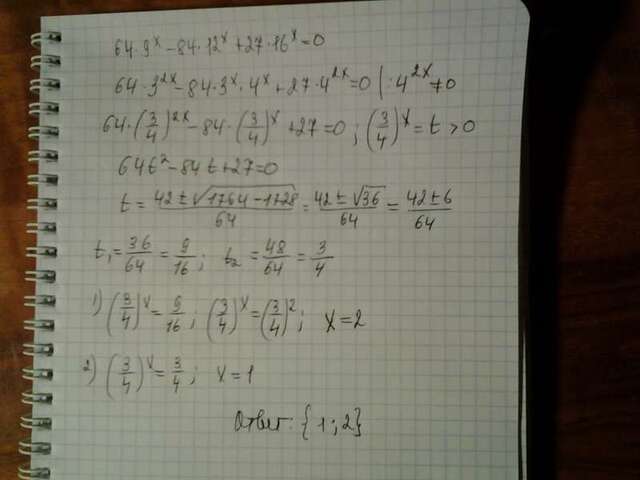 64·9ˣ-84·12ˣ+27·16ˣ=0
64·3²ˣ-84·3ˣ·4ˣ+27·4²ˣ=0 |:4²ˣ≠0
64·(3/4)²ˣ-84·(3/4)ˣ+27=0; (3/4)ˣ=t>0
64t²-84t+27=0
t=(42±√(1764-1728))/64=(42±√36)/64=(42±6)/64
t₁=36/64=9/16; t₂=48/64=3/4
1) (3/4)ˣ=9/16; (3/4)ˣ=(3/4)²; x=2
2) (3/4)ˣ=3/4; x=1
Ответ: {1;2}